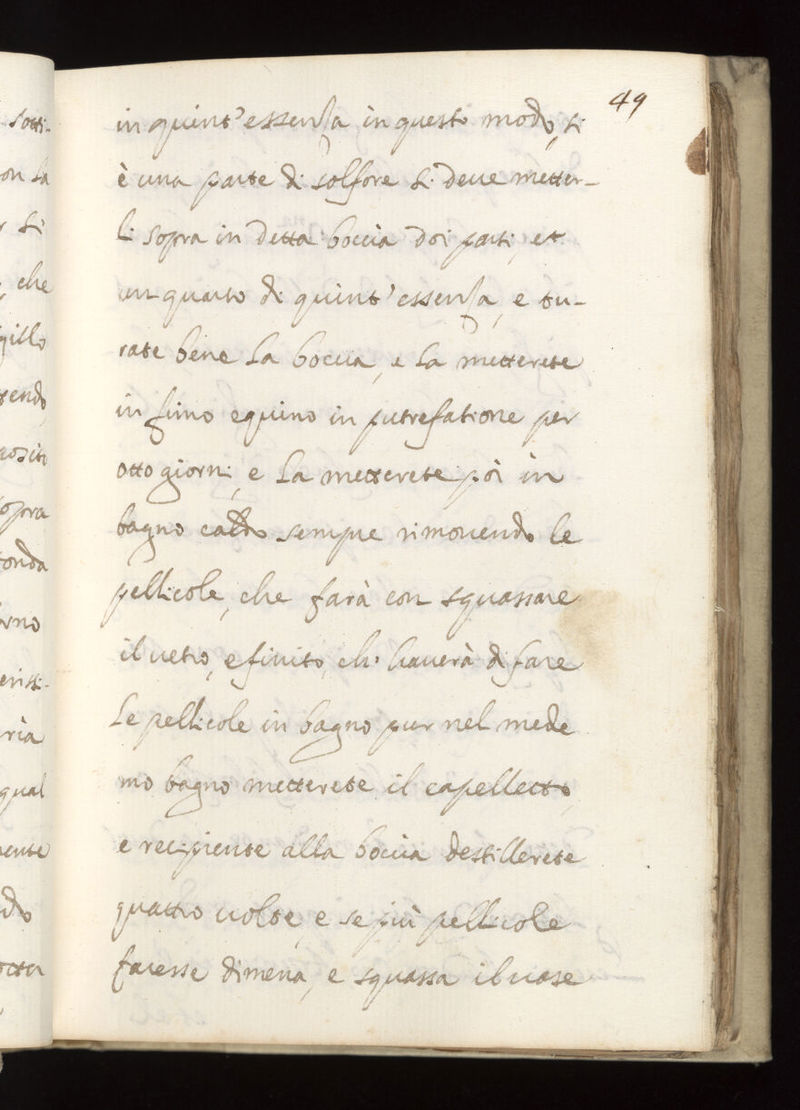 49
in quint'essenza in questo modo, si
è una parte di solfore si deve metter-
li sopra in detta boccia doi parti, et
un quarto di quint'essenza, e tu-
rate bene la boccia, e la metterete
in fimo equino in putrefatione per
otto giorni, e la metterete poi in
bagno caldo sempre rimovendo le
pellicole, che farà con squassare
il vetro, e finito, ch' haverà di fare
le pellicole in bagno pur nel mede
mo bagno metterete il capelletto,
e recipiente alla boccia destillerete
quattro volte, e se più pellicole
facesse dimena, e squassa il vase
sotti-
on la
r si
, che
gillo
tendo,
positi
sopra
tonda
orno
eristi-
ria
qual
mente
do